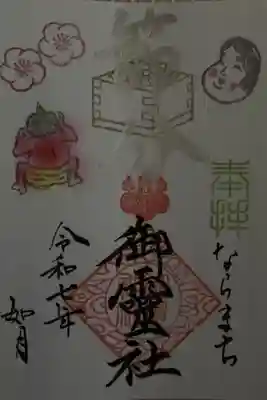 奉拝
ならまち
御霊社
令和七年
如月